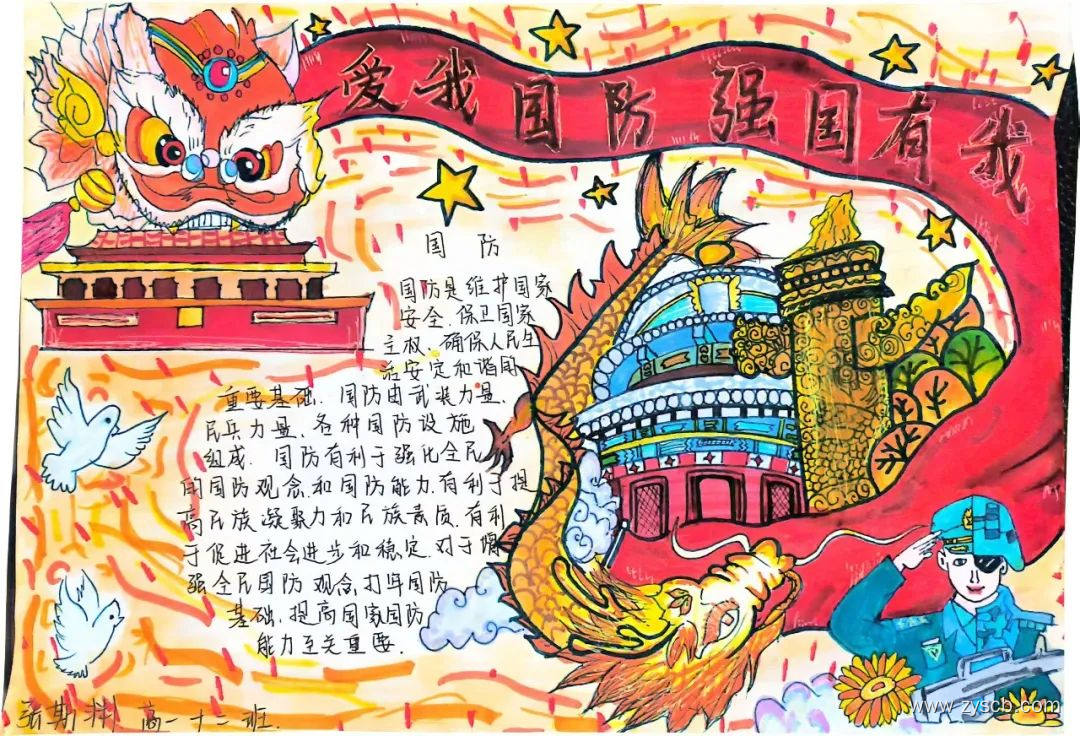 爱我国防 强国有我
国防
国防是维护国家
安全、保卫国家
主权、确保人民生
活安定和谐国
重要基础、国防由武装力量、
民兵力量、各种国防设施
组成. 国防有利于强化全民
的国防观念和国防能力,有利于提
高民族凝聚力和民族素质.有利
于促进社会进步和稳定.对于增
强全民国防观念,打牢国防
基础,提高国家国防
能力至关重要.
张斯 高一十二班.
www.zyscb.com